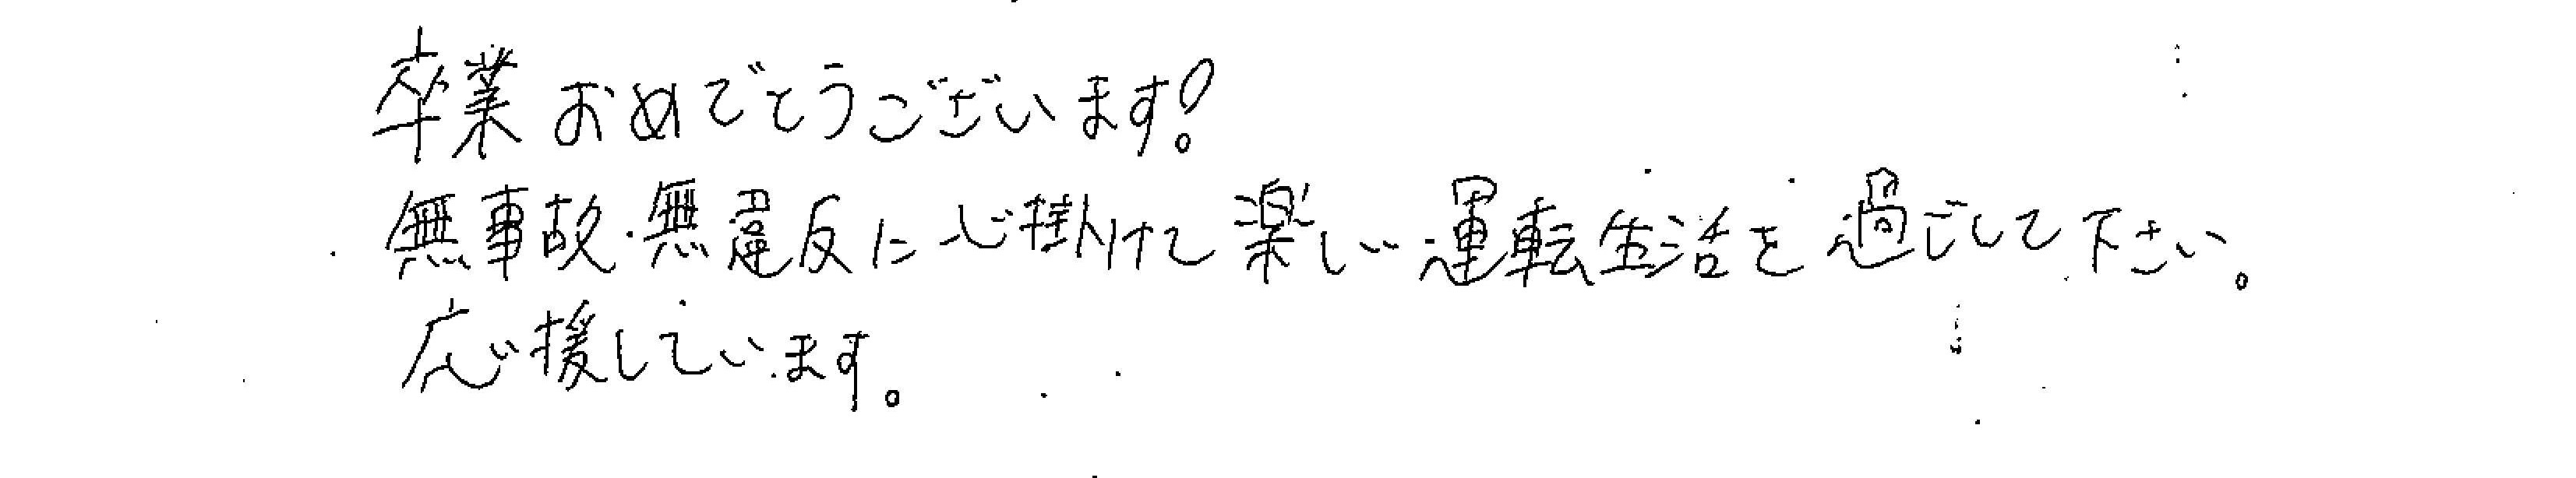 卒業おめでとうございます!
無事故・無違反に心掛けて楽しい運転生活を過ごして下さい。
応援しています。